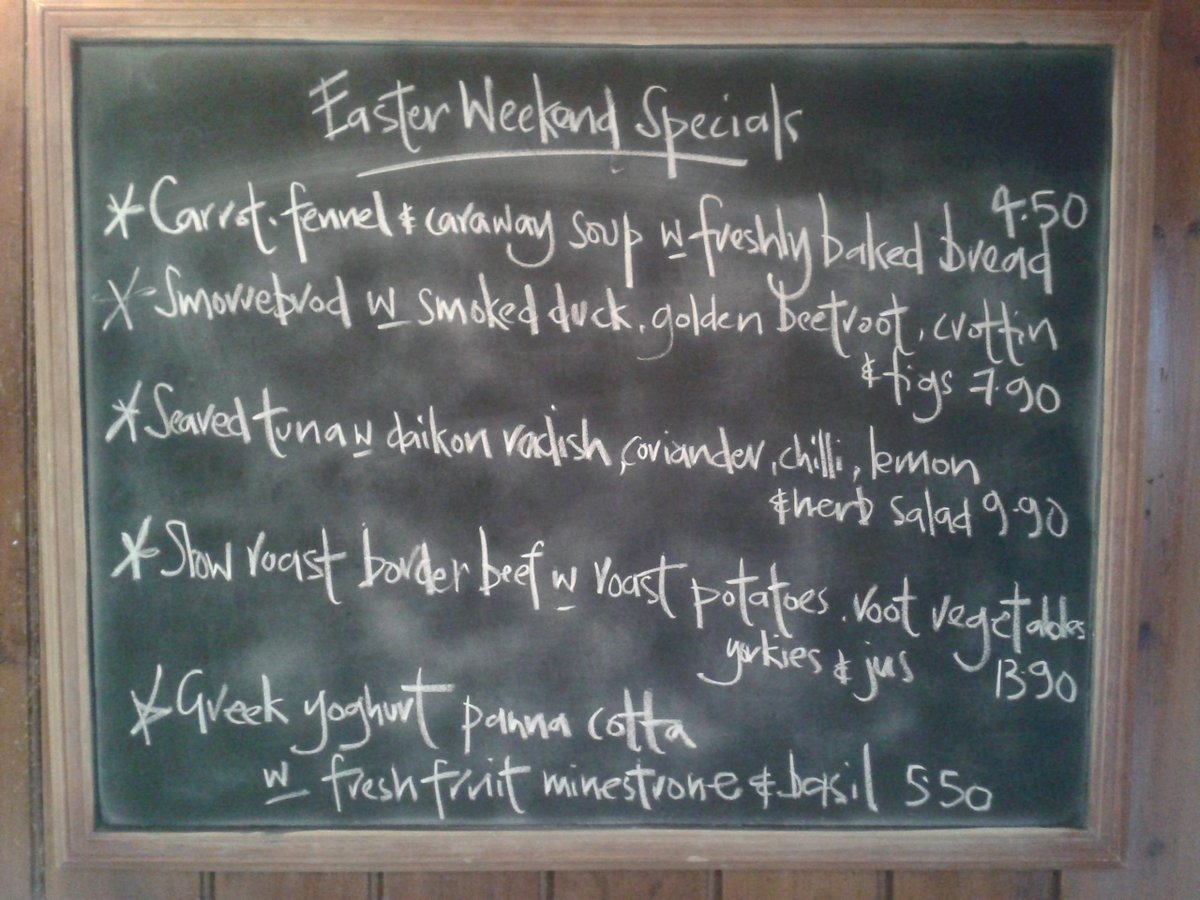 Easter Weekend Specials
* Carrot. fennel & caraway soup w freshly baked bread 4.50
* Smorrebrod w smoked duck, golden beetroot, crottin
& figs 7.90
* Seared tuna w daikon radish, coriander, chilli, lemon
& herb salad 9.90
* Slow roast border beef w roast potatoes, root vegetables
yorkies & jus 13.90
* Greek yoghurt panna cotta
w fresh fruit minestrone & basil 5.50